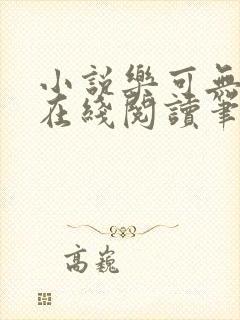 小說樂可無
在綫閱讀筆
高巍